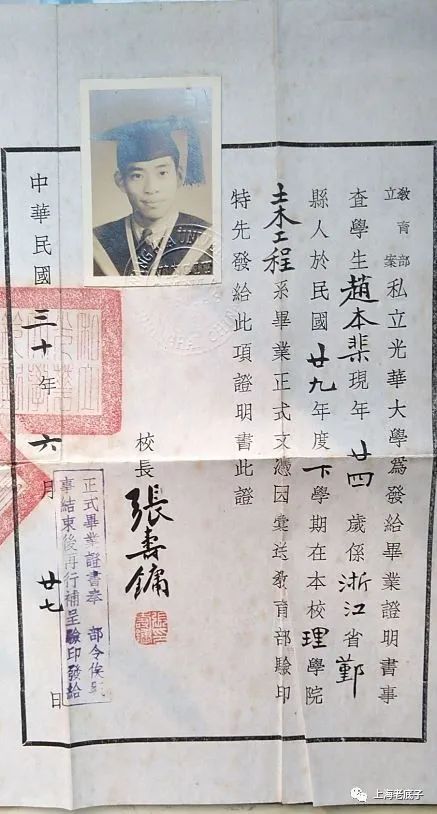 教育部
立案
私立光華大學爲發給畢業證明書事
查學生趙本棐現年廿四歲係浙江省鄞
縣人於民國廿九年度下學期在本校理學院
土木工程系畢業正式文憑因彙送教育部驗印
特先發給此項證明書此證
校長張壽鏞
正式畢業證書奉 部令俟戰
事結束後再行補呈驗印發給
中華民國三十年六月廿七日
上海老底子